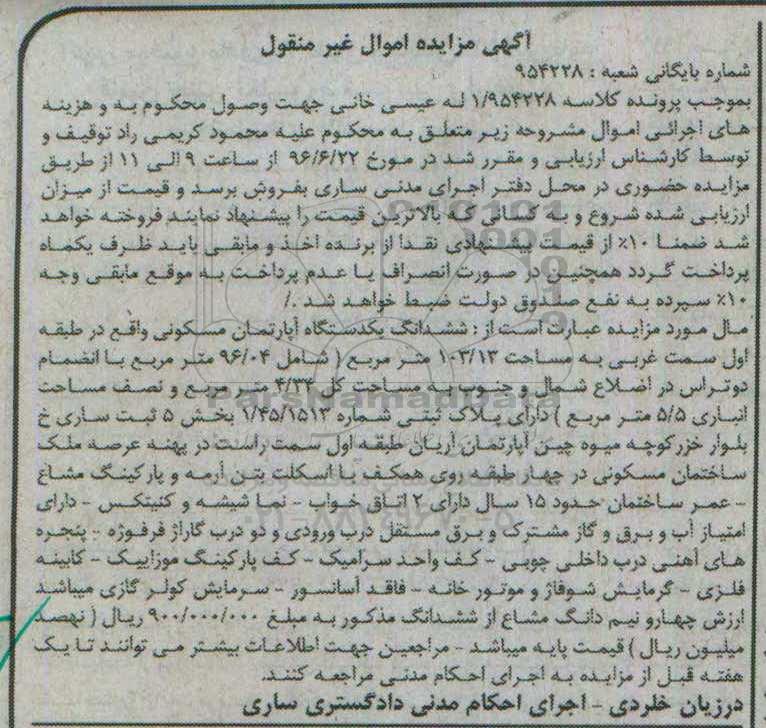 آگهی مزایده اموال غیر منقول
شماره بایگانی شعبه : ۹۵۴۲۲۸
بموجب پرونده کلاسه ۱/۹۵۴۲۲۸ له عیسی خانی جهت وصول محکوم به و هزینه
های اجرائی اموال مشروحه زیر متعلق به محکوم علیه محمود کریمی راد توقیف و
توسط کارشناس ارزیابی و مقرر شد در مورخ ۹۶/۶/۲۲ از ساعت ۹ الی ۱۱ از طریق
مزایده حضوری در محل دفتر اجرای مدنی ساری بفروش برسد و قیمت از میزان
ارزیابی شده شروع و به کسانی که بالاترین قیمت را پیشنهاد نمایند فروخته خواهد
شد ضمنا ۱۰٪ از قیمت پیشنهادی نقدا از برنده اخذ و مابقی باید ظرف یکماه
پرداخت گردد همچنین در صورت انصراف یا عدم پرداخت به موقع مابقی وجه
۱۰٪ سپرده به نفع صندوق دولت ضبط خواهد شد ./
مال مورد مزایده عبارت است از : ششدانگ یکدستگاه آپارتمان مسکونی واقع در طبقه
اول سمت غربی به مساحت ۱۰۳/۱۳ متر مربع ( شامل ۹۶/۰۴ متر مربع با انضمام
دوتراس در اضلاع شمال و جنوب به مساحت کل ۴/۳۴ متر مربع و نصف مساحت
انباری ۵/۵ متر مربع ) دارای پلاک ثبتی شماره ۱/۴۵/۱۵۱۳ بخش ۵ ثبت ساری خ
بلوار خزر کوچه میوه چین آپارتمان آریان طبقه اول سمت راست در پهنه عرصه ملک
ساختمان مسکونی در چهار طبقه روی همکف با اسکلت بتن آرمه و پارکینگ مشاع
- عمر ساختمان حدود ۱۵ سال دارای ۲ اتاق خواب - نما شیشه و کنیتکس - دارای
امتیاز آب و برق و گاز مشترک و برق مستقل درب ورودی و دو درب گاراژ فرفوژه - پنجره
های آهنی درب داخلی چوبی - کف واحد سرامیک - کف پارکینگ موزاییک - کابینه
فلزی - گرمایش شوفاژ و موتور خانه - فاقد آسانسور - سرمایش کولر گازی میباشد
ارزش چهارو نیم دانگ مشاع از ششدانگ مذکور به مبلغ ۹۰۰/۰۰۰/۰۰۰ ریال ( نهصد
میلیون ریال ) قیمت پایه میباشد - مراجعین جهت اطلاعات بیشتر می توانند تا یک
هفته قبل از مزایده به اجرای احکام مدنی مراجعه کنند.
درزیان خلردی - اجرای احکام مدنی دادگستری ساری
ParsNamadData